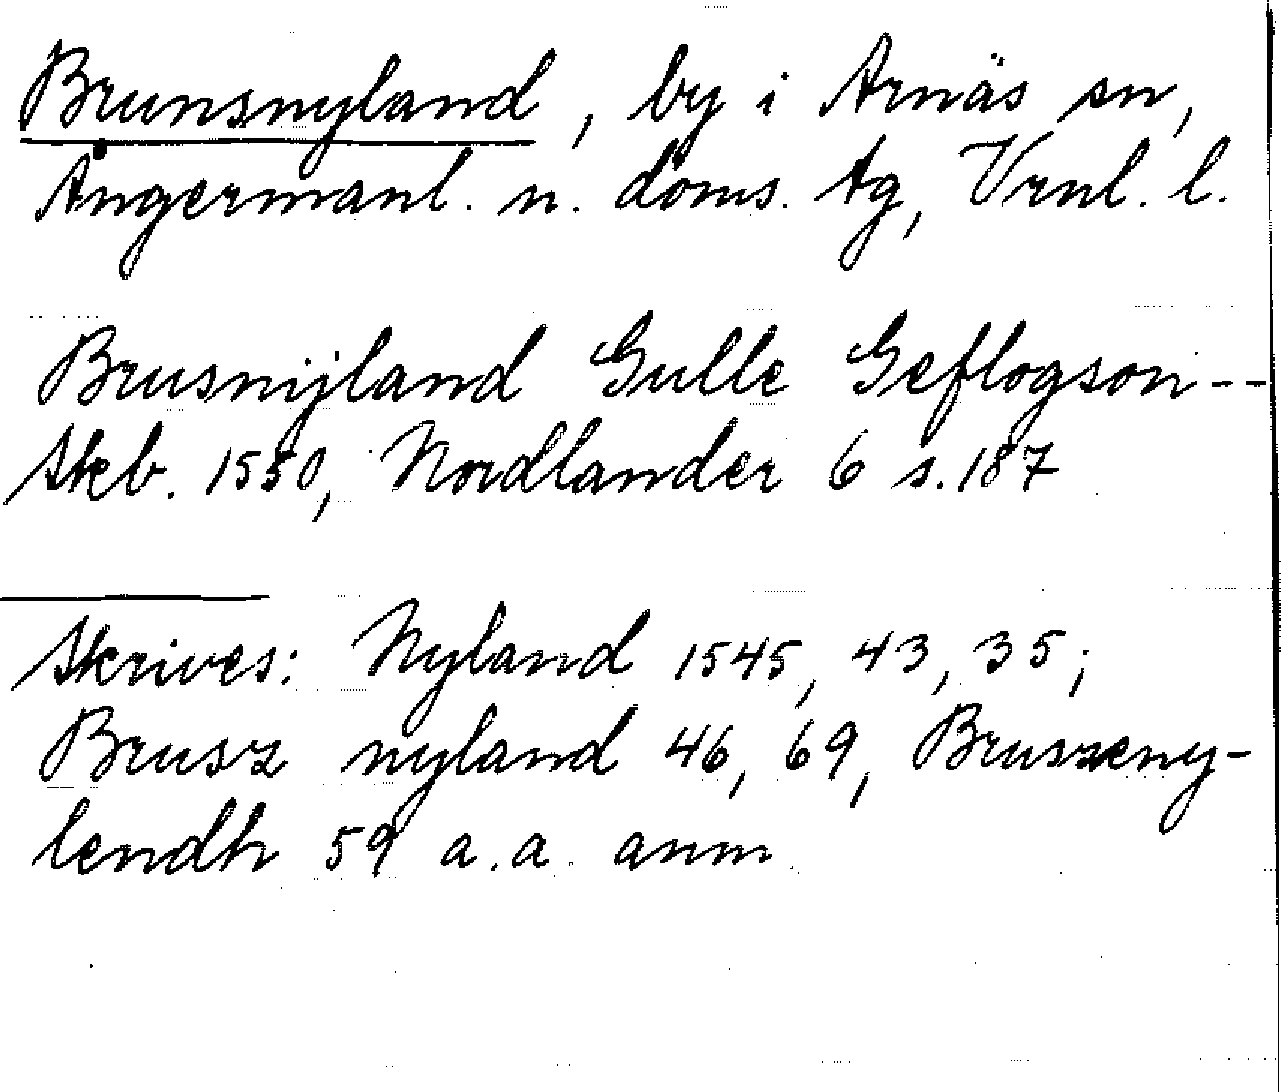 Brunsnyland, by i Arnäs sn,
Ångermanl. n. doms. tg, Vrnl. l.
Brusnijland Gulle Geflogson--
Skb. 1550, Nordlander 6 s.187
Skrives: Nyland 1545, 43, 35;
Brusz nyland 46, 69, Bruszeny-
lendh 59 a.a. anm.